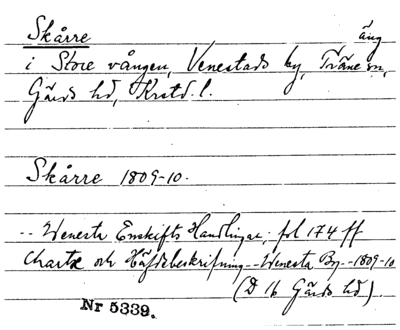 Skårre äng
i Store vången, Venestads by, Träne sn,
Gärds hd, Krstd. l.
Skårre 1809-10.
-- Wenesta Enskifts Handlingar; fol 174 ff
Charta och Häfdebeskrifning -- Wenesta By -- 1809-10
(D 16 Gärds hd).
Nr 5339.